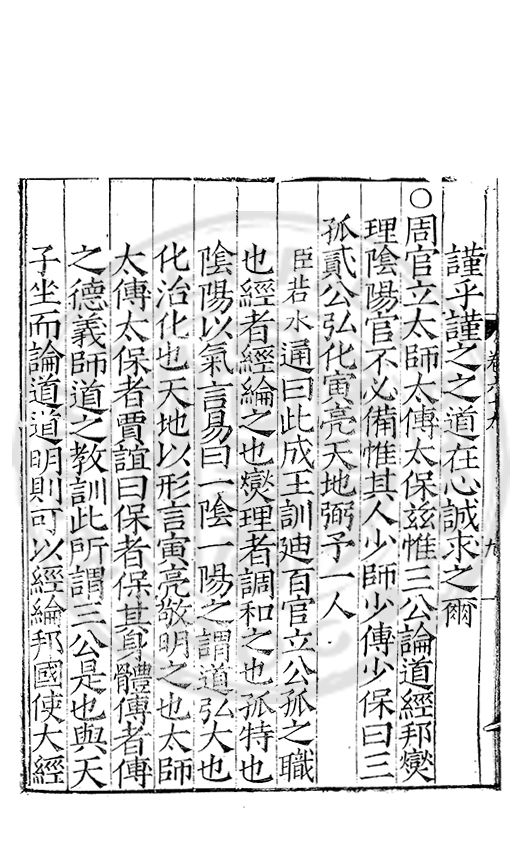 卷六十九
謹乎謹之之道在心誠求之爾
○周官立太師太傅太保兹惟三公論道經邦燮
理陰陽官不必備惟其人少師少傅少保曰三
孤貳公弘化寅亮天地弼予一人
臣若水通曰此成王訓廸百官立公孤之職
也經者經綸之也燮理者調和之也孤特也
陰陽以氣言易曰一陰一陽之謂道弘大也
化治化也天地以形言寅亮敬明之也太師
太傅太保者賈誼曰保者保其身體傅者傅
之德義師道之教訓此所謂三公是也與天
子坐而論道道明則可以經綸邦國使大經